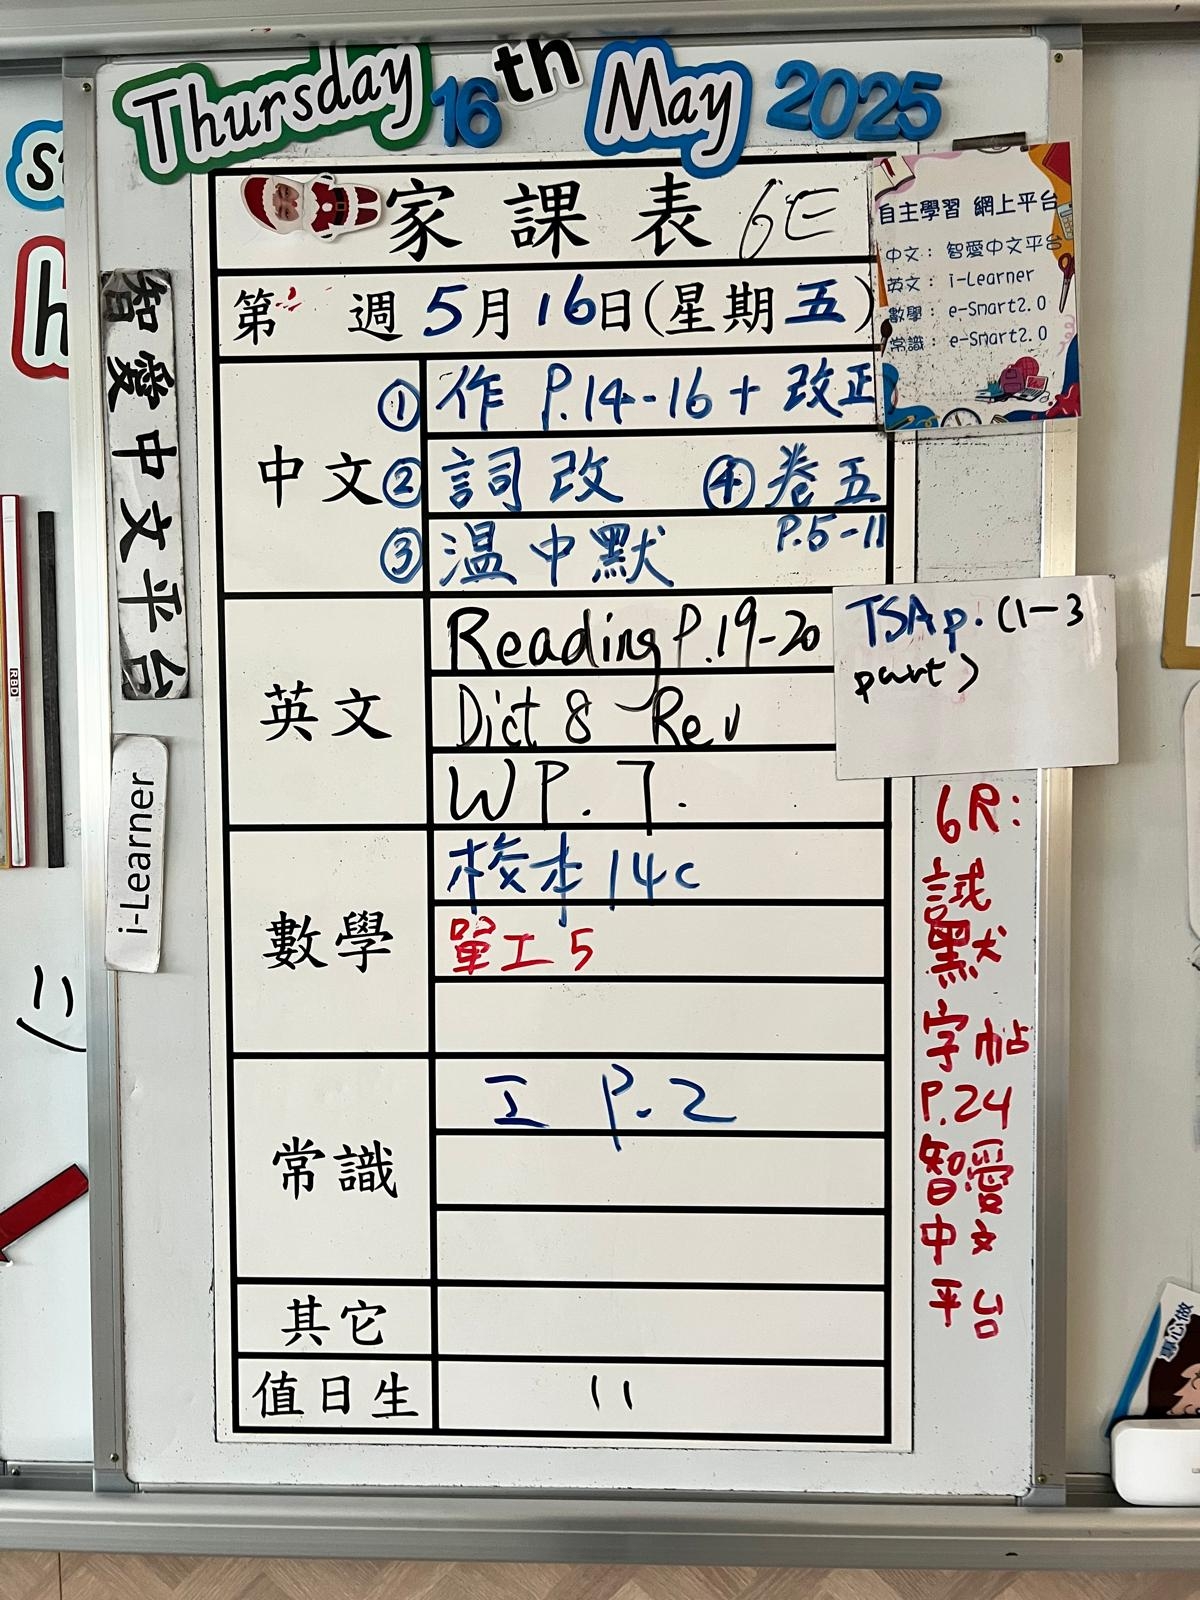 Thursday 16th May 2025
家課表 6E
自主學習 網上平台
中文：智愛中文平台
英文：i-Learner
數學：e-Smart2.0
常識：e-Smart2.0
第 週 5月16日(星期五)
中文
① 作 P.14-16 + 改正
② 詞改 ④ 卷五
P.5-11
③ 温中默
英文
Reading P.19-20
TSA p. (1-3
part)
Dict 8 Rev
W P. 7.
數學
校本 14c
單工 5
常識
工 P.2
其它
值日生
11
6R:
試
默
字帖
P.24
智愛
中文
平台
智愛中文平台
i-Learner
RBD
專心做